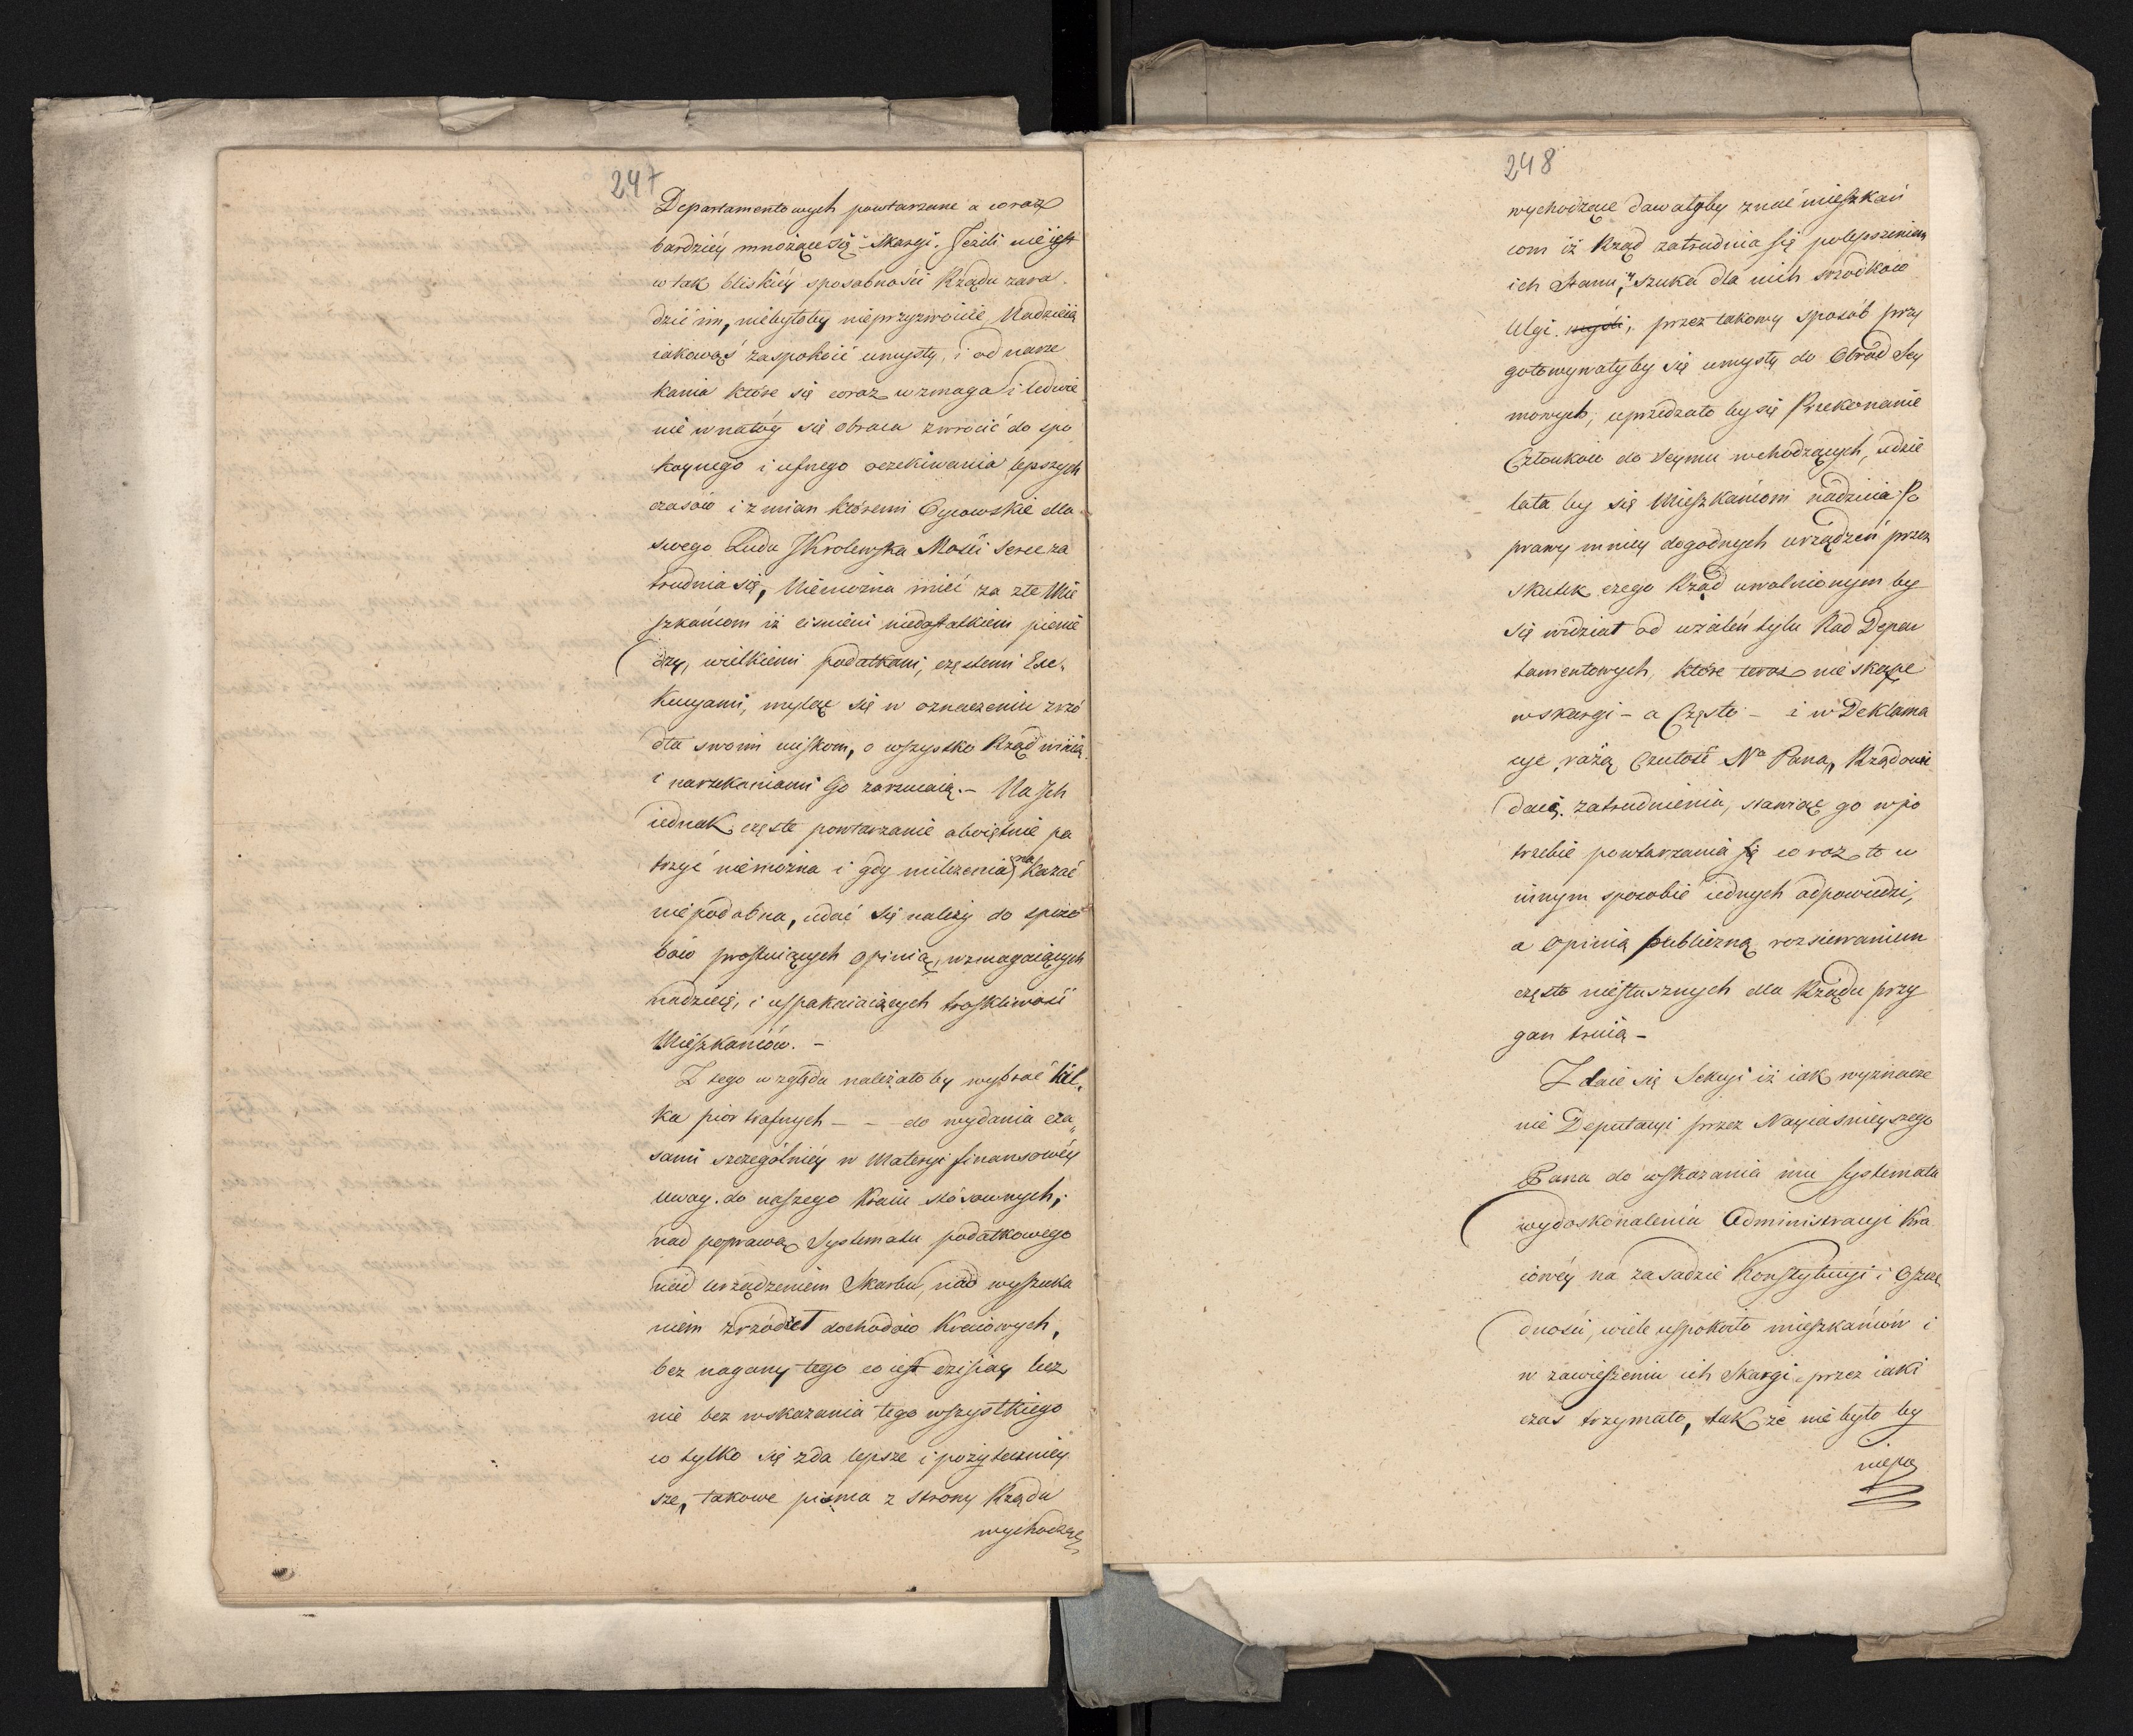 247
Departamentowych powtarzane a coraz
bardziéy mnożące się Skargi. Jeżeli nie jest
w tak bliskiéy sposobności Rządu zara
dzić im, niebyłoby nieprzyzwoicie Nadzieią
iakowąś zaspokoić umysły, i od narze
kania które się coraz wzmaga i ledwie
nie w nałóg się obraca zwrócić do spo
koynego i ufnego oczekiwania lepszych
czasów i zmian któremi Oycowskie dla
swego Ludu JKrolewska Mości Serce za
trudnia się, Niemożna mieć za złe Mie
szkańcom iż ciśnieni niedostatkiem pienię
dzy, wielkiemi podatkami, częstemi Exe,
kucyami, myląc się w oznaczeniu zrzó
dła swoim uciskom, o wszystko Rząd winią
i narzekaniami Go zarzucaią. - Na Ich
iednak częste powtarzanie oboiętnie pa
trzyć niemożna i gdy milczenia na kazać
niepodobna, udać się należy do sposo
bów prostuiących opinią, wzmagaiących
nadzieię, i uspakaiaiących troskliwość
Mieszkańców. -
Z tego względu należałoby wybrać kil,
ka piór trafnych - - do wydania cza,,
sami szczególniéy w Materyi finansowéy
uwag. do naszego Kraiu stósownych,
nad poprawą Systematu podatkowego
nad urządzeniem Skarbu, nad wyszuka
niem zrzódeł dochodów Kraiowych,
bez nagany tego co iest dzisiay lecz
nie bez wskazania tego wszystkiego
co tylko się zda lepsze i pożyteczniéy
sze, takowe pisma z strony Rządu
wychodzące
248
wychodzące dawałyby znać mieszkań
com iż Rząd zatrudnia się polepszeniem
ich Stanu, szuka dla nich srzodków
Ulgi. przez takowy sposób przy
gotowywałyby się umysły do Obrad Sey
mowych, uprzedzało by się Przekonanie
Członków do Seymu wchodzących, udzie
lała by się Mieszkańcom nadzieia Po
prawy mniéy dogodnych urządzeń przez
skutek czego Rząd uwolnionym by
się widział od użaleń tylu Rad Depar
tamentowych, które teraz nie skąpe
w skargi - a Często - i w Deklama
cye, rażą Czułość No Pana, Rządowi
daią zatrudnienia, stawiąc go w po
trzebie powtarzania się coraz to w
innym sposobie iednych odpowiedzi,
a Opinią publiczną rozsiewaniem
często niesłusznych dla Rządu przy
gan truią -
Zdaie się Sekcyi iż iak wyznacze
nie Deputacyi przez Nayiaśnieyszego
Pana do wskazania mu Systematu
wydoskonalenia Administracyi Kra
iowéy na zasadzie Konstytucyi i Oszczę
dności, wiele uspokoiło mieszkańców i
w zawieszeniu ich Skargi przez iaki
czas trzymało, tak że nie było by
niepo